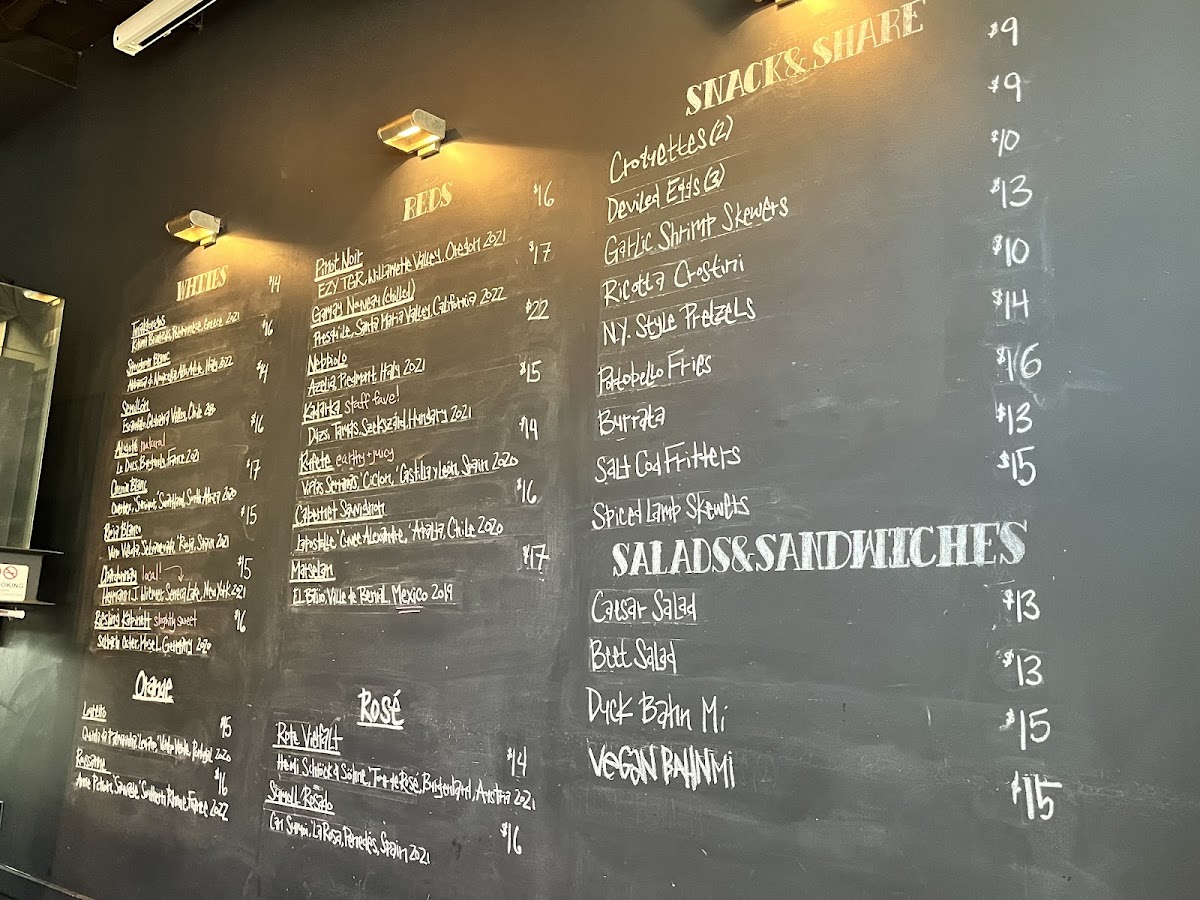 WHITES
$14
Kir-Yianni
$16
Sauvignon Blanc
Italy 2022
$14
Semillón
Valley, Chile
$16
Aligoté natural
Le Ducs, Burgundy, France 2021
$17
Chenin Blanc
South Africa 2020
$15
Rioja Blanco
Rioja, Spain 2021
$15
Chardonnay local!
Hermann J. Wiemer, Seneca Lake, New York 2021
$16
Riesling Kabinett slightly sweet
Selbach Oster, Mosel, Germany 2020
Orange
Loureiro
$15
Portugal 2020
Roussanne
$16
Southern Rhone, France 2022
REDS
$16
Pinot Noir
EZY TGR, Willamette Valley, Oregon 2021
$17
Gamay Nouveau (chilled)
Presqu'ile, Santa Maria Valley, California 2022
$22
Nebbiolo
Azelia, Piedmont, Italy 2021
$15
Kadarka staff fave!
Dúzsi Tamás, Szekszárd, Hungary 2021
$14
Rufete earthy + juicy
Viñas Serranas, 'Cuclon,' Castilla y León, Spain 2020
$16
Cabernet Sauvignon
Lapostolle 'Cuvee Alexandre,' Apalta, Chile 2020
$17
Marselan
El Bajio, Ville de Bernal, Mexico 2019
Rosé
Rote Vielfalt
$14
Heidi Schröck & Söhne, 'Tour de Rosé, Burgenland, Austria 2021
Sumoll Rosado
$16
Can Sumoi, 'La Rosa, Penedès, Spain 2021
SNACK & SHARE
Croquettes (2) $9
Deviled Eggs (3) $9
Garlic Shrimp Skewers $10
Ricotta Crostini $13
N.Y. Style Pretzels $10
Portobello Fries $14
Burrata $16
Salt Cod Fritters $13
Spiced Lamb Skewers $15
SALADS & SANDWICHES
Caesar Salad $13
Beet Salad $13
Duck Bahn Mi $15
VEGAN BAHN MI $15